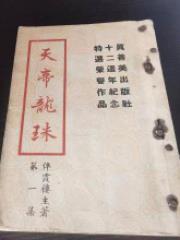 真善美出版社
十二週年紀念
特選榮譽作品
天帝龍珠
伴霞樓主著
第一集